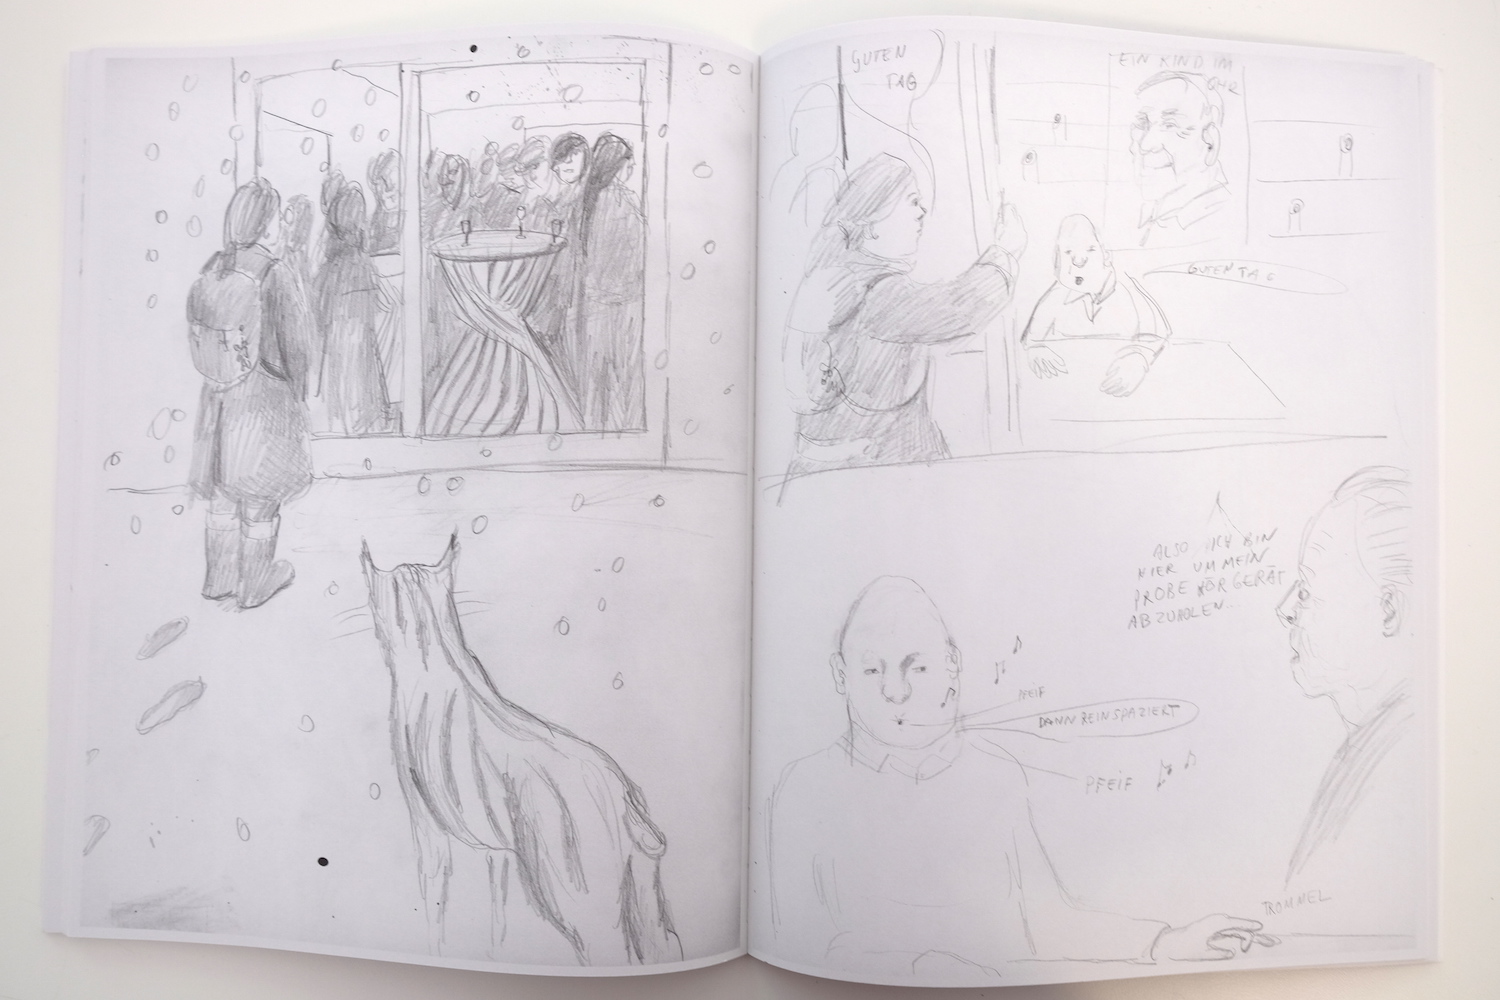 GUTEN
TAG
EIN KIND IM
OHR
GUTEN TAG
ALSO ICH BIN
HIER UM MEIN
PROBE HÖRGERÄT
ABZUHOLEN...
PFEIF
DANN REINSPAZIERT
PFEIF
TROMMEL